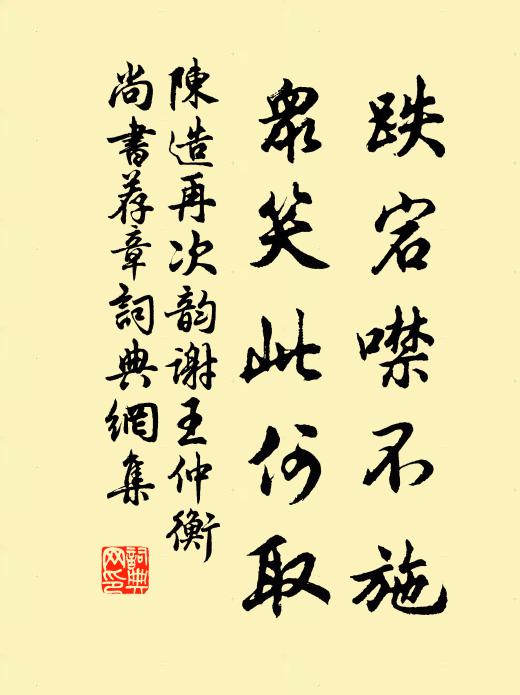 跌宕噤不施
眾笑此何取
陳造再次韵謝王仲衡
尚書荐章詞典網集
詞典
网印